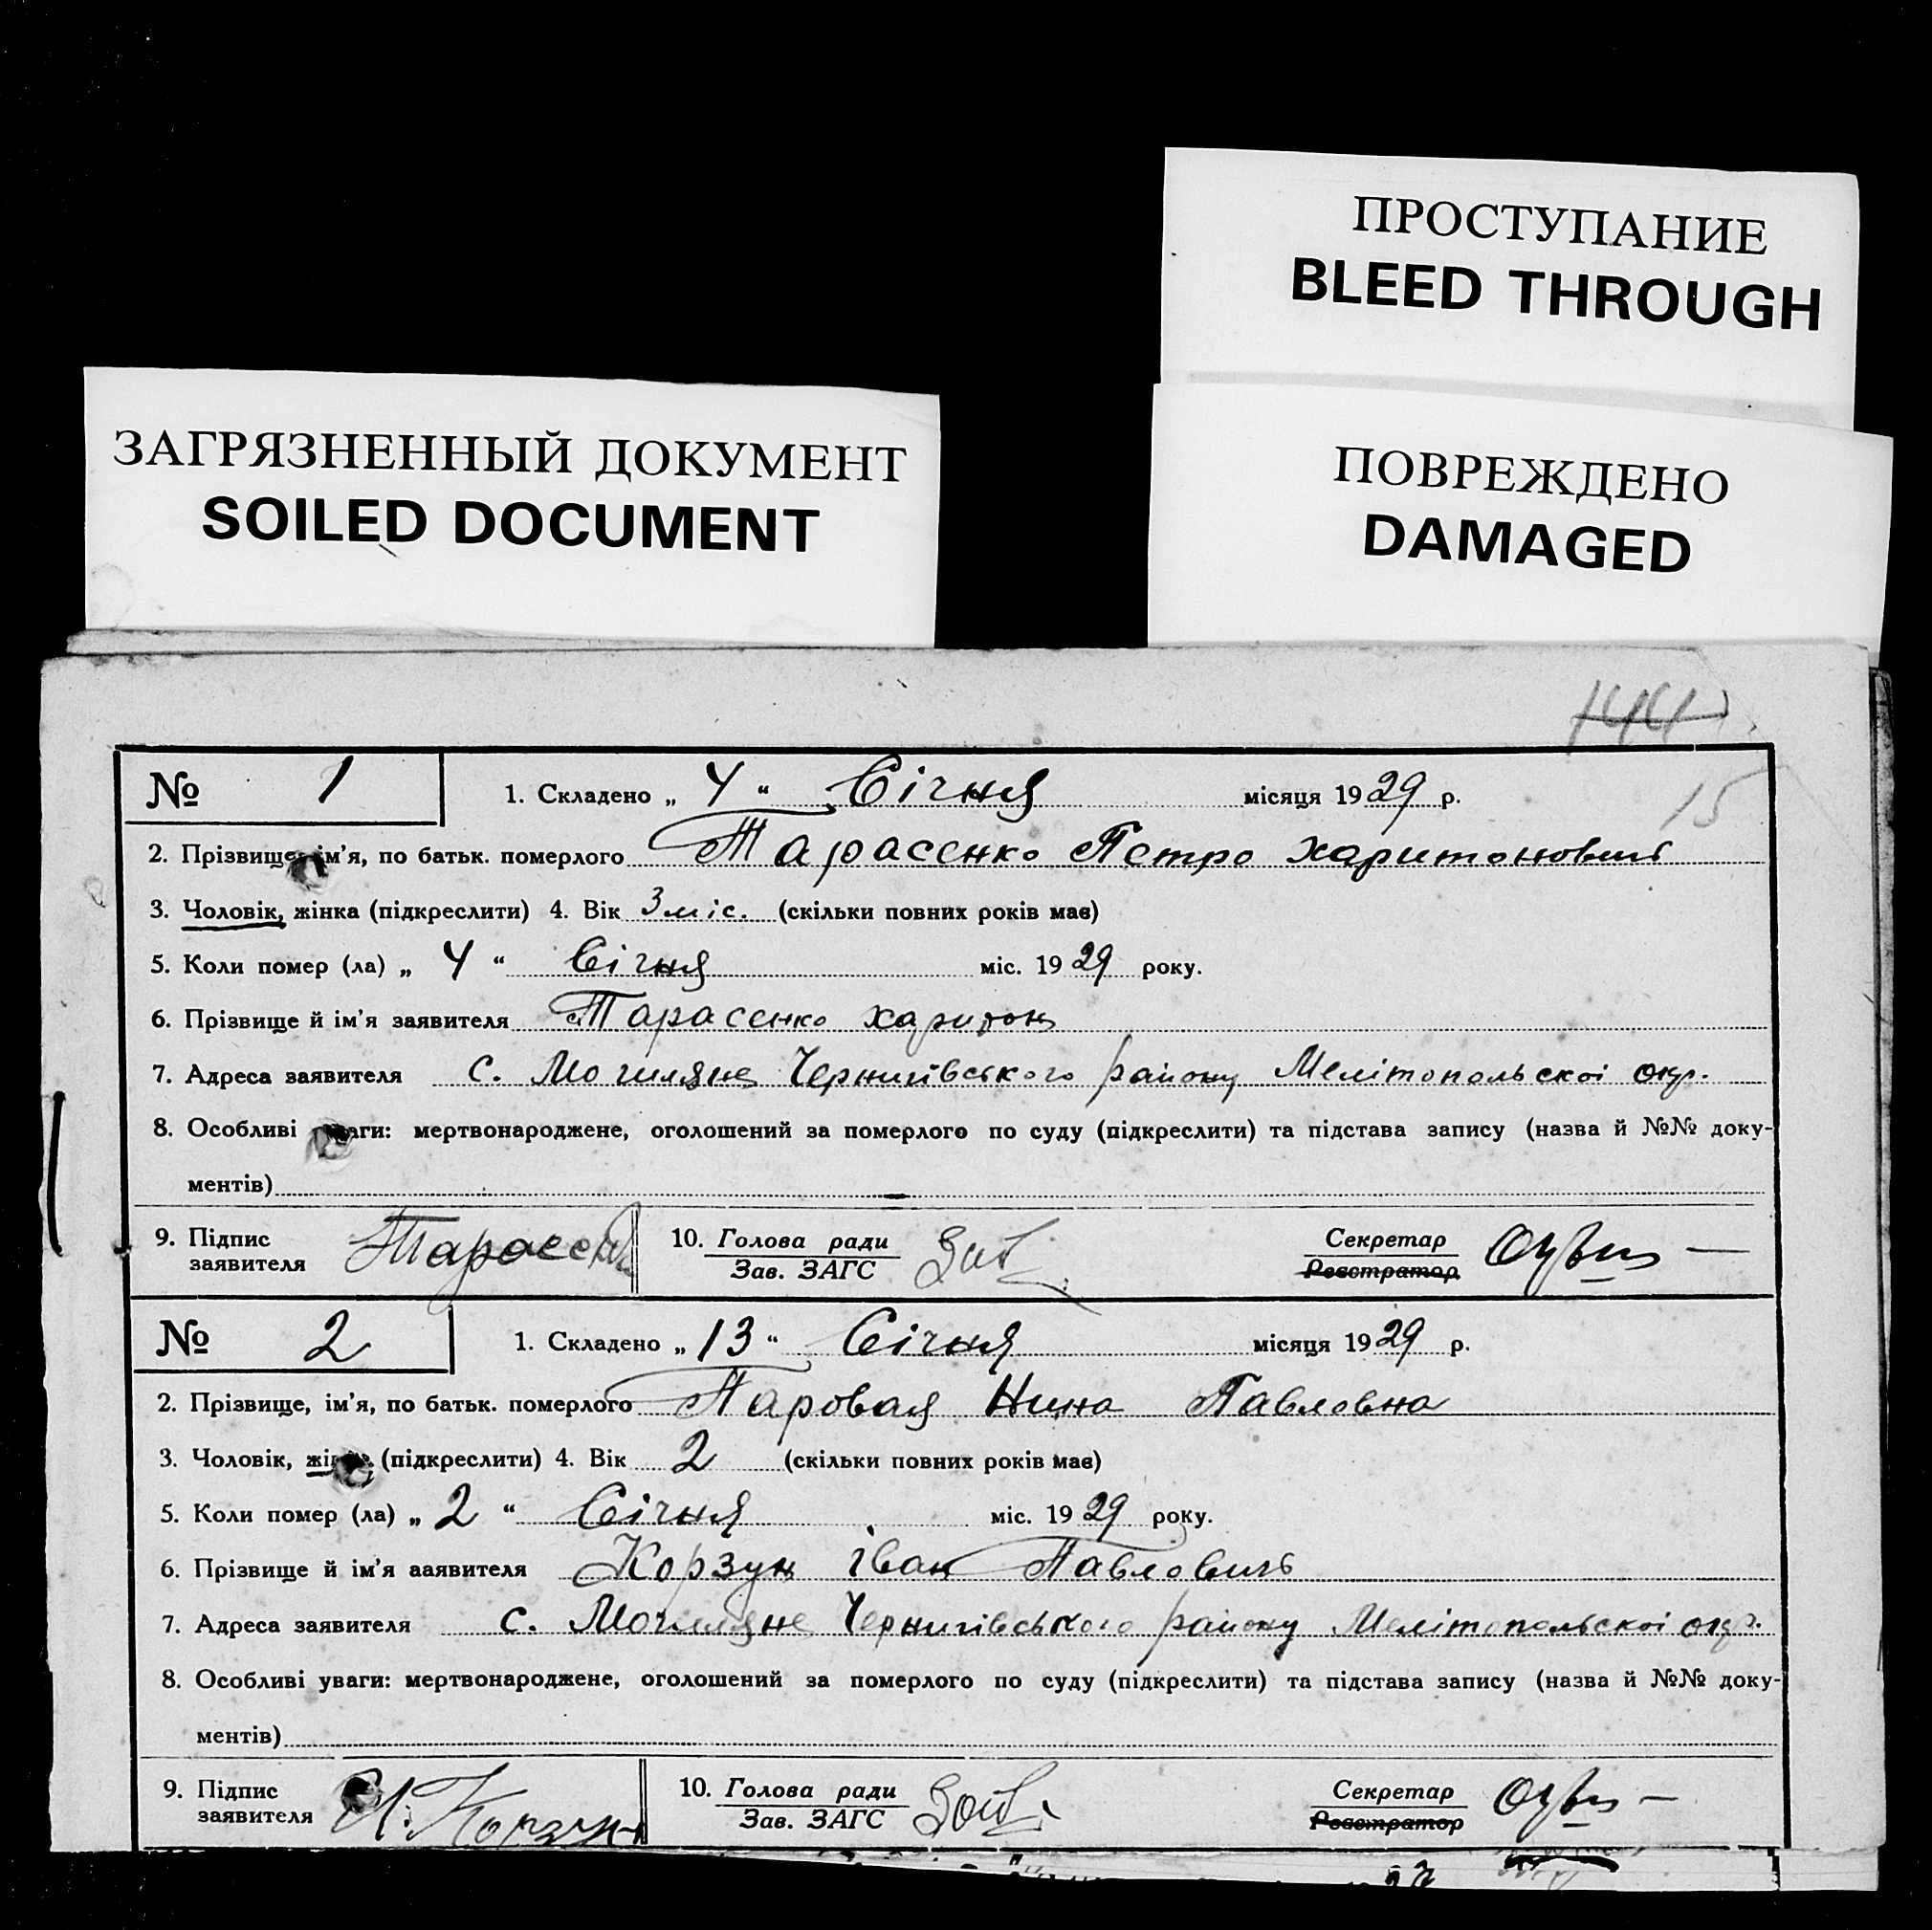 ПРОСТУПАНИЕ
BLEED THROUGH
ЗАГРЯЗНЕННЫЙ ДОКУМЕНТ
SOILED DOCUMENT
ПОВРЕЖДЕНО
DAMAGED
144
15
№ 1 1. Складено „ 4 “ Січня місяця 1929 р.
2. Прізвище, ім'я, по батьк. померлого Тарасенко Петро Харитоновичь
3. Чоловік, жінка (підкреслити) 4. Вік 3 міс. (скільки повних років має)
5. Коли помер (ла) „ 4 “ Січня міс. 1929 року.
6. Прізвище й ім'я заявителя Тарасенко Харитон
7. Адреса заявителя с. Могиляне Чернигівського району Мелітопольскоі окр.
8. Особливі уваги: мертвонароджене, оголошений за померлого по суду (підкреслити) та підстава запису (назва й №№ доку-
ментів)
9. Підпис заявителя Тарасенко 10. Голова ради Зав. ЗАГС Секретар Реєстратор
№ 2 1. Складено „ 13 “ Січня місяця 1929 р.
2. Прізвище, ім'я, по батьк. померлого Паровая Нина Павловна
3. Чоловік, жінка (підкреслити) 4. Вік 2 (скільки повних років має)
5. Коли помер (ла) „ 2 “ Січня міс. 1929 року.
6. Прізвище й ім'я заявителя Корзун Іван Павловичь
7. Адреса заявителя с. Могиляне Чернигівського району Мелітопольскоі окр.
8. Особливі уваги: мертвонароджене, оголошений за померлого по суду (підкреслити) та підстава запису (назва й №№ доку-
ментів)
9. Підпис заявителя И. Корзун 10. Голова ради Зав. ЗАГС Секретар Реєстратор